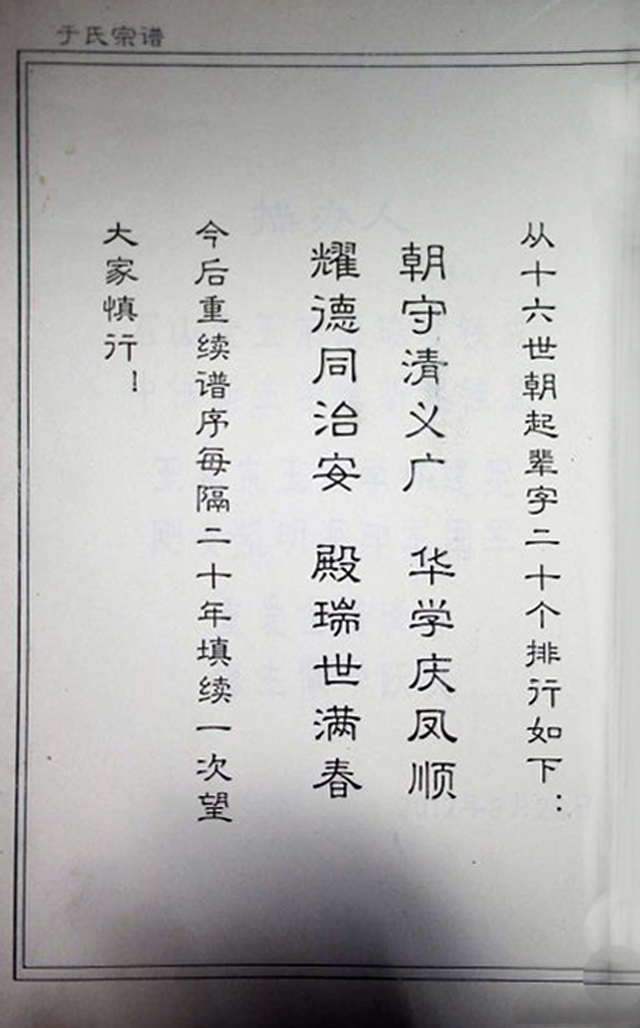 于氏宗谱
从十六世朝起辈字二十个排行如下：
朝守清义广 华学庆凤顺
耀德同治安 殿瑞世满春
今后重续谱序每隔二十年填续一次望
大家慎行！